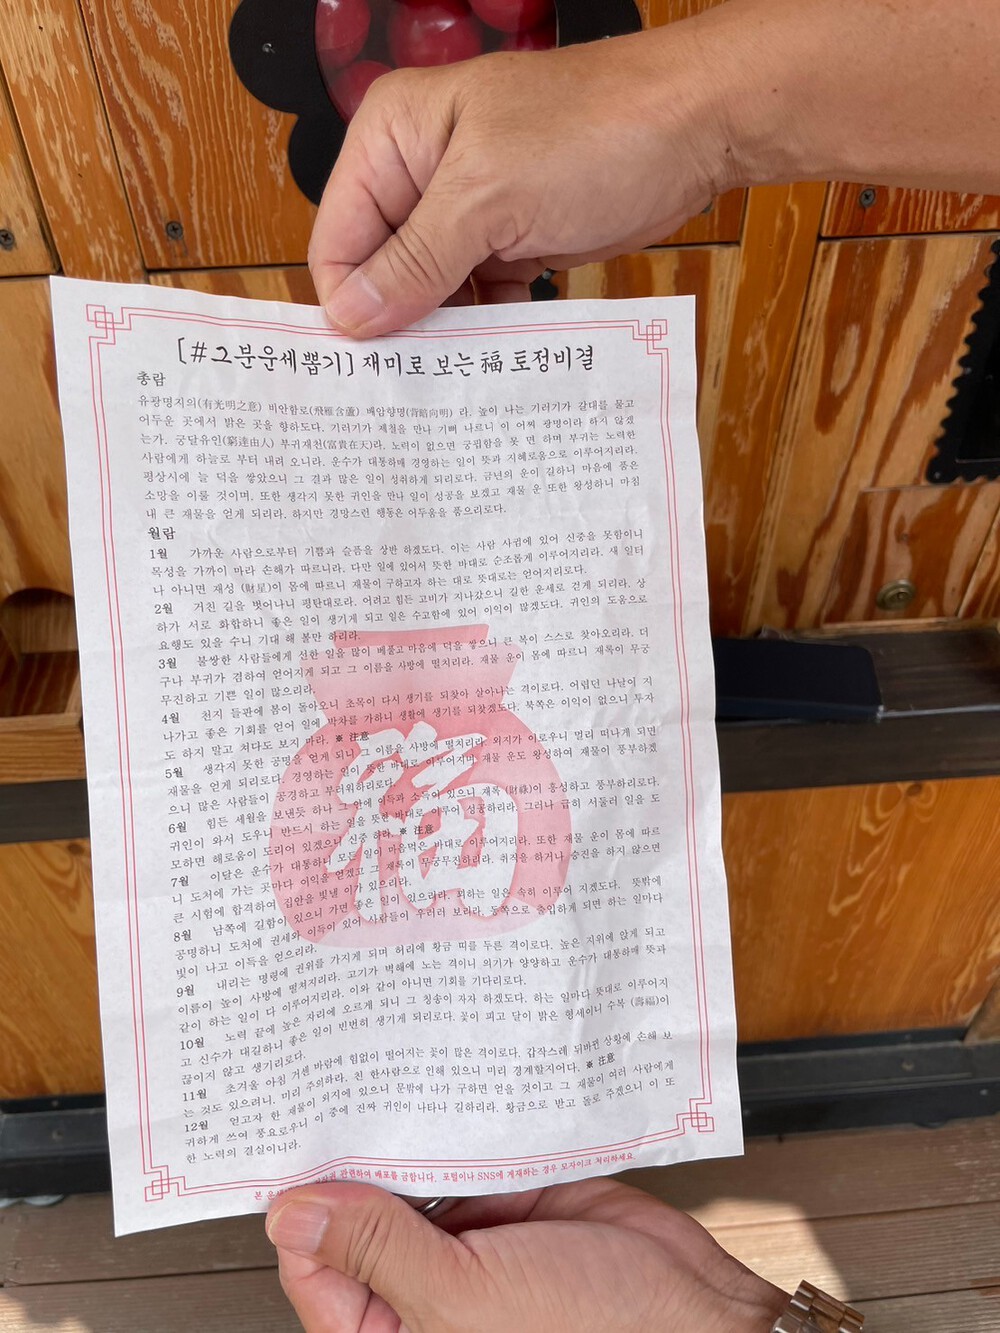 [#그분운세뽑기] 재미로 보는 福 토정비결
총람
유광명지의(有光明之意) 비안함로(飛雁含蘆) 배암향명(背暗向明) 라. 높이 나는 기러기가 갈대를 물고
어두운 곳에서 밝은 곳을 향하도다. 기러기가 제철을 만나 기뻐 나르니 이 어찌 광명이라 하지 않겠
는가. 궁달유인(窮達由人) 부귀재천(富貴在天)라. 노력이 없으면 궁핍함을 못 면 하며 부귀는 노력한
사람에게 하늘로 부터 내려 오니라. 운수가 대통하매 경영하는 일이 뜻과 지혜로움으로 이루어지리라.
평상시에 늘 덕을 쌓았으니 그 결과 많은 일이 성취하게 되리로다. 금년의 운이 길하니 마음에 품은
소망을 이룰 것이며, 또한 생각지 못한 귀인을 만나 일이 성공을 보겠고 재물 운 또한 왕성하니 마침
내 큰 재물을 얻게 되리라. 하지만 경망스런 행동은 어두움을 품으리로다.
월람
1월 가까운 사람으로부터 기쁨과 슬픔을 상반 하겠도다. 이는 사람 사귐에 있어 신중을 못함이니
목성을 가까이 마라 손해가 따르니라. 다만 일에 있어서 뜻한 바대로 순조롭게 이루어지리라. 새 일터
나 아니면 재성 (財星)이 몸에 따르니 재물이 구하고자 하는 대로 뜻대로는 얻어지리로다.
2월 거친 길을 벗어나니 평탄대로라. 어려고 힘든 고비가 지나갔으니 길한 운세로 걷게 되리라. 상
하가 서로 화합하니 좋은 일이 생기게 되고 일은 수고함에 있어 이익이 많겠도다. 귀인의 도움으로
요행도 있을 수니 기대 해 볼만 하리라.
3월 불쌍한 사람들에게 선한 일을 많이 베풀고 마음에 덕을 쌓으니 큰 복이 스스로 찾아오리라. 더
구나 부귀가 겸하여 얻어지게 되고 그 이름을 사방에 떨치리라. 재물 운이 몸에 따르니 재록이 무궁
무진하고 기쁜 일이 많으리라.
4월 천지 들판에 봄이 돌아오니 초목이 다시 생기를 되찾아 살아나는 격이로다. 어렵던 나날이 지
나가고 좋은 기회를 얻어 일에 박차를 가하니 생활에 생기를 되찾겠도다. 북쪽은 이익이 없으니 투자
도 하지 말고 쳐다도 보지 마라. ※ 注意
5월 생각지 못한 공명을 얻게 되니 그 이름을 사방에 떨치리라. 외지가 이로우니 멀리 떠나게 되면
재물을 얻게 되리로다. 경영하는 일이 뜻한 바대로 이루어지며 재물 운도 왕성하여 재물이 풍부하겠
으니 많은 사람들이 공경하고 부러워하리로다.
6월 힘든 세월을 보낸듯 하나 그 안에 이득과 소득이 있으니 재록 (財祿)이 흥성하고 풍부하리로다.
귀인이 와서 도우니 반드시 하는 일을 뜻한 바대로 이루어 성공하리라. 그러나 급히 서둘러 일을 도
모하면 해로움이 도리어 있겠으니 신중 하라. ※ 注意
7월 이달은 운수가 대통하니 모든 일이 마음먹은 바대로 이루어지리라. 또한 재물 운이 몸에 따르
니 도처에 가는 곳마다 이익을 얻겠고 그 재록이 무궁무진하리라. 취직을 하거나 승진을 하지 않으면
큰 시험에 합격하여 집안을 빛낼 이가 있으리라.
8월 남쪽에 길함이 있으니 가면 좋은 일이 있으리라. 꾀하는 일은 속히 이루어 지겠도다. 뜻밖에
공명하니 도처에 권세와 이득이 있어 사람들이 우러러 보리라. 동쪽으로 출입하게 되면 하는 일마다
빛이 나고 이득을 얻으리라.
9월 내리는 명령에 권위를 가지게 되며 허리에 황금 띠를 두른 격이로다. 높은 지위에 앉게 되고
이름이 높이 사방에 떨쳐지리라. 고기가 벽해에 노는 격이니 의기가 양양하고 운수가 대통하매 뜻과
같이 하는 일이 다 이루어지리라. 이와 같이 아니면 기회를 기다리로다.
10월 노력 끝에 높은 자리에 오르게 되니 그 칭송이 자자 하겠도다. 하는 일마다 뜻대로 이루어지
고 신수가 대길하니 좋은 일이 빈번히 생기게 되리로다. 꽃이 피고 달이 밝은 형세이니 수복 (壽福)이
끊이지 않고 생기리로다.
11월 초겨울 아침 거센 바람에 힘없이 떨어지는 꽃이 많은 격이로다. 갑작스레 뒤바뀐 상황에 손해 보
는 것도 있으려니. 미리 주의하라. 친 한사람으로 인해 있으니 미리 경계할지어다. ※ 注意
12월 얻고자 한 재물이 외지에 있으니 문밖에 나가 구하면 얻을 것이고 그 재물이 여러 사람에게
귀하게 쓰여 풍요로우니 이 중에 진짜 귀인이 나타나 길하리라. 황금으로 받고 돌로 주겠으니 이 또
한 노력의 결실이니라.
福
본 운세 관련하여 배포를 금합니다. 포털이나 SNS에 게재하는 경우 모자이크 처리하세요.